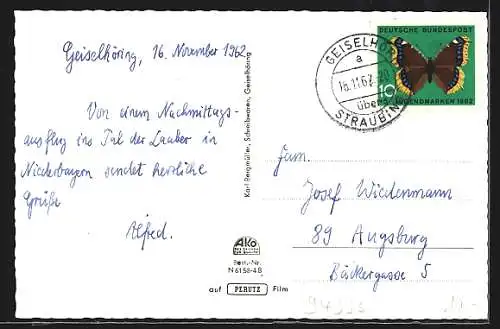 Geiselhöring, 16. November 1962
Von einem Nachmittags-
ausflug ins Tal der Laaber in
Niederbayern sendet herzliche
Grüße
Alfred.
Karl Bergmüller, Schreibwaren, Geiselhöring
AKO
Best.-Nr.
N 6156-4 B
auf PERUTZ Film
GEISELHÖ
a
16.11.62.-20
über
STRAUBIN
DEUTSCHE BUNDESPOST
10
JUGENDMARKEN 1962
Fam.
Josef Wiedenmann
89 Augsburg
Bäckergasse 5